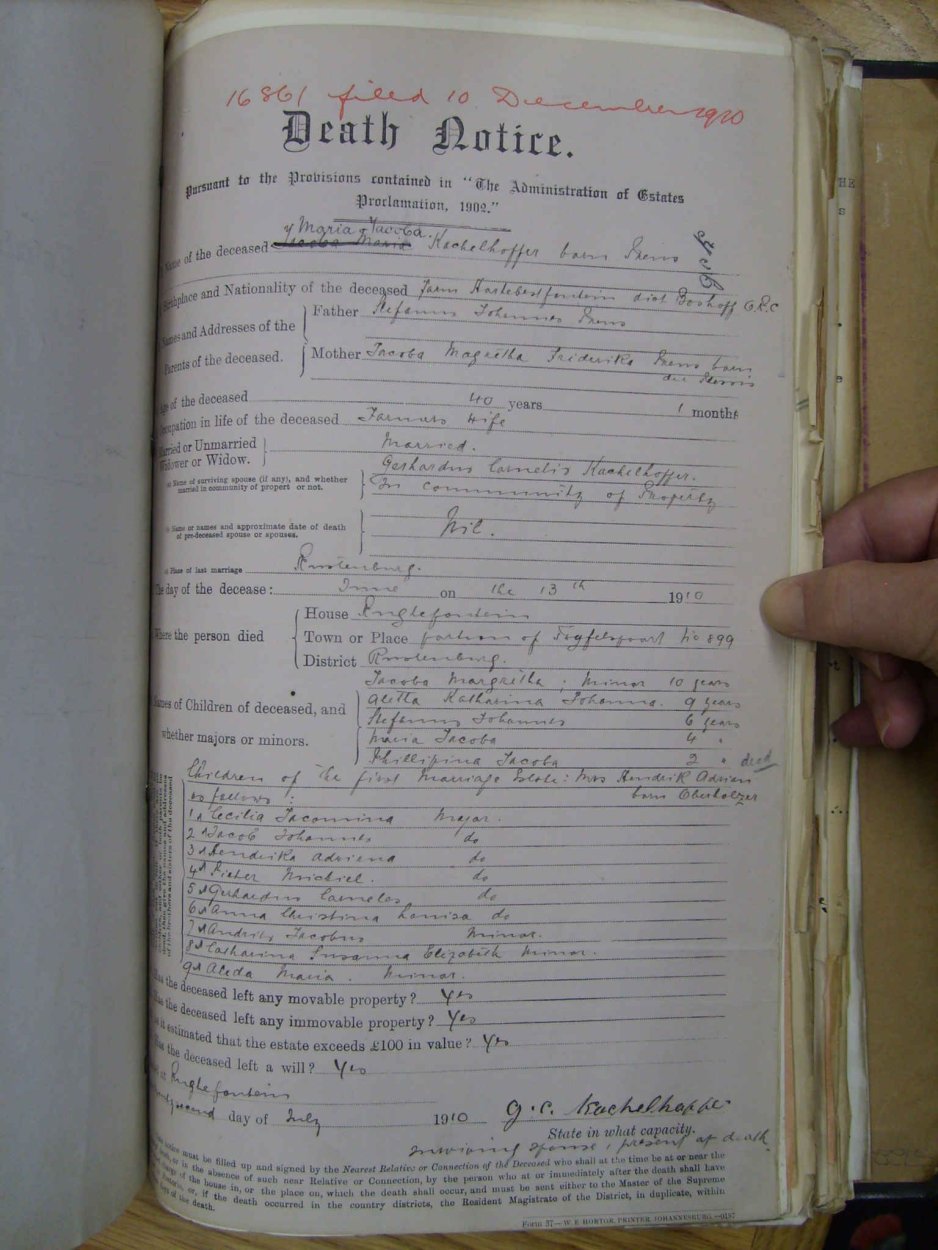 16861 filed 10 December 1910
Death Notice.
Pursuant to the Provisions contained in "The Administration of Estates
Proclamation, 1902."
Maria Jacoba
Name of the deceased Jacoba Maria Kachelhoffer born
Birthplace and Nationality of the deceased Farm Hartebestfontein dist Boshoff O.R.C
Names and Addresses of the Parents of the deceased.
Father Stefanus Johannes
Mother Jacoba Magretha Friderika born
Age of the deceased 40 years 1 months
Occupation in life of the deceased Farmers Wife
Married or Unmarried
Widower or Widow.
Married.
(a) Name of surviving spouse (if any), and whether
married in community of propert or not.
Gerhardus Cornelis Kachelhoffer.
In community of Property
Name or names and approximate date of death
of pre-deceased spouse or spouses.
Nil.
Place of last marriage Rustenburg.
The day of the decease: June on the 13th 1910
Where the person died
House
Town or Place portion of No 899
District Rustenburg.
Names of Children of deceased, and
whether majors or minors.
Jacoba Margretha, Minor 10 years
Aletta Katharina Johanna. 9 years
Stefanus Johannes 6 years
Maria Jacoba 4 "
Phillipina Jacoba 2 " died
Children of the first Marriage Mrs Hendrik Adrian
as follows: born Oberholtzer
1 Cecilia Jacomina Major.
2 Jacob Johannes do
3 Henderika Adriena do
4 Pieter Michiel. do
5 Gerhardus Cornelos do
6 Anna Christina Louisa do
7 Andries Jacobus Minor.
8 Catharina Susanna Elizabeth Minor.
9 Aleda Maria. Minor.
Has the deceased left any movable property? Yes
Has the deceased left any immovable property? Yes
Is it estimated that the estate exceeds £100 in value? Yes
Has the deceased left a will? Yes
day of July 1910 G. C. Kachelhoffer
State in what capacity.
surviving spouse present at death
notice must be filled up and signed by the Nearest Relative or Connection of the Deceased who shall at the time be at or near the
death, or in the absence of such near Relative or Connection, by the person who at or immediately after the death shall have
charge of the house in, or the place on, which the death shall occur, and must be sent either to the Master of the Supreme
or, if the death occurred in the country districts, the Resident Magistrate of the District, in duplicate, within
of the death.
Form 37—W. E. HORTOR, PRINTER, JOHANNESBURG.